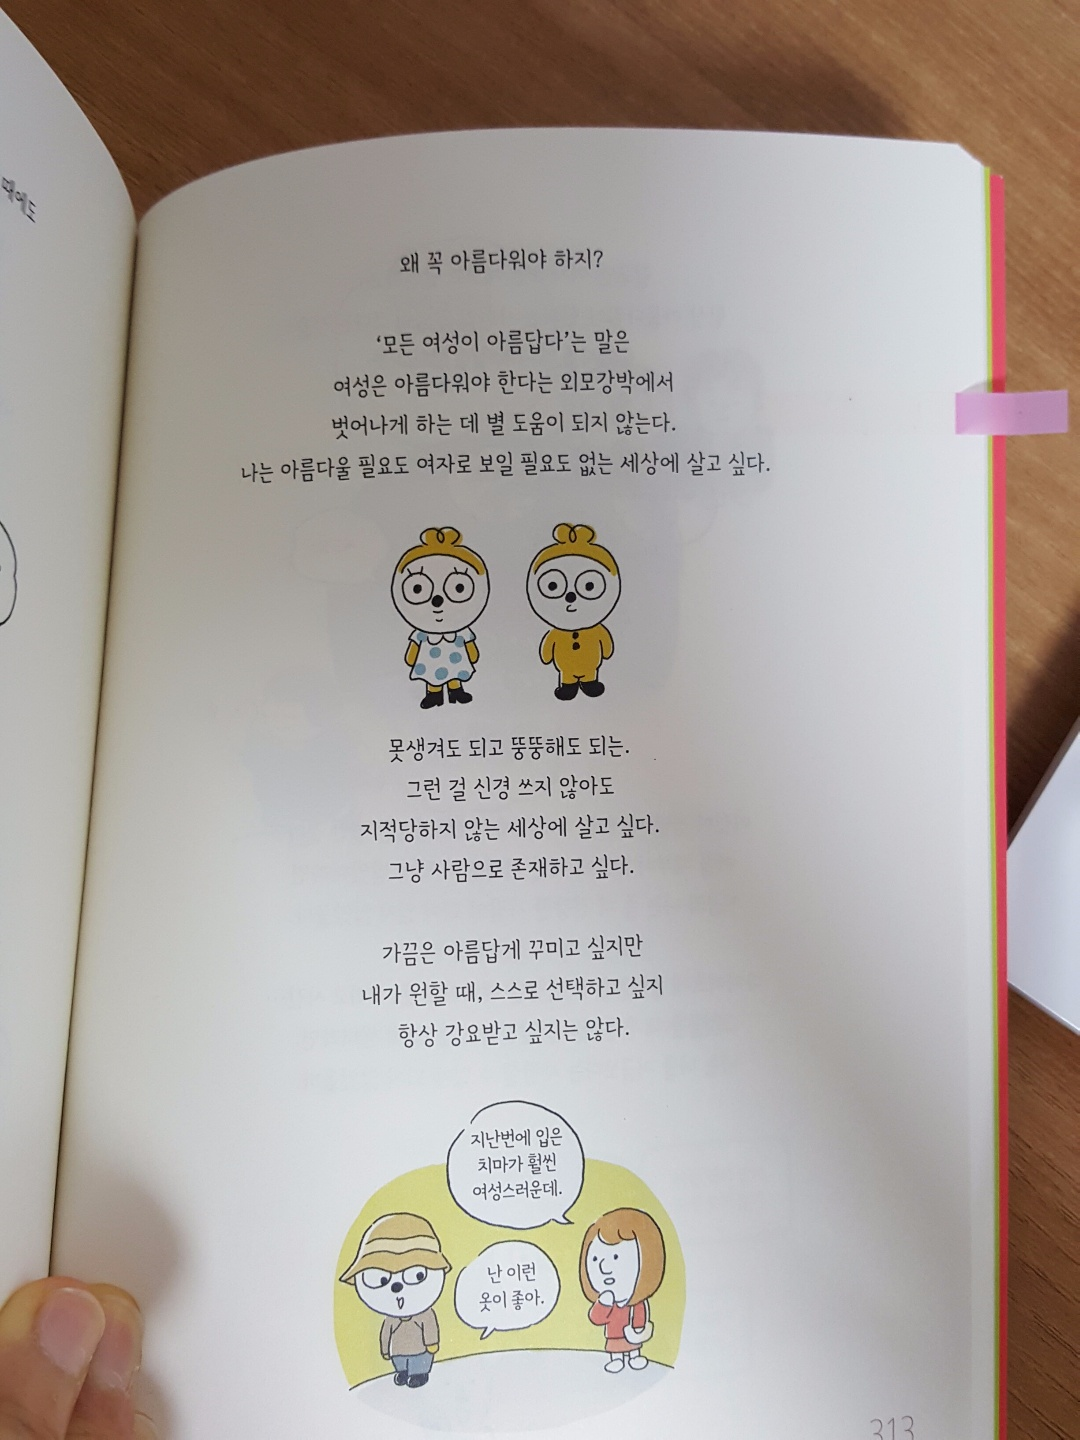 때에도
왜 꼭 아름다워야 하지?
‘모든 여성이 아름답다’는 말은
여성은 아름다워야 한다는 외모강박에서
벗어나게 하는 데 별 도움이 되지 않는다.
나는 아름다울 필요도 여자로 보일 필요도 없는 세상에 살고 싶다.
못생겨도 되고 뚱뚱해도 되는.
그런 걸 신경 쓰지 않아도
지적당하지 않는 세상에 살고 싶다.
그냥 사람으로 존재하고 싶다.
가끔은 아름답게 꾸미고 싶지만
내가 원할 때, 스스로 선택하고 싶지
항상 강요받고 싶지는 않다.
지난번에 입은
치마가 훨씬
여성스러운데.
난 이런
옷이 좋아.
313